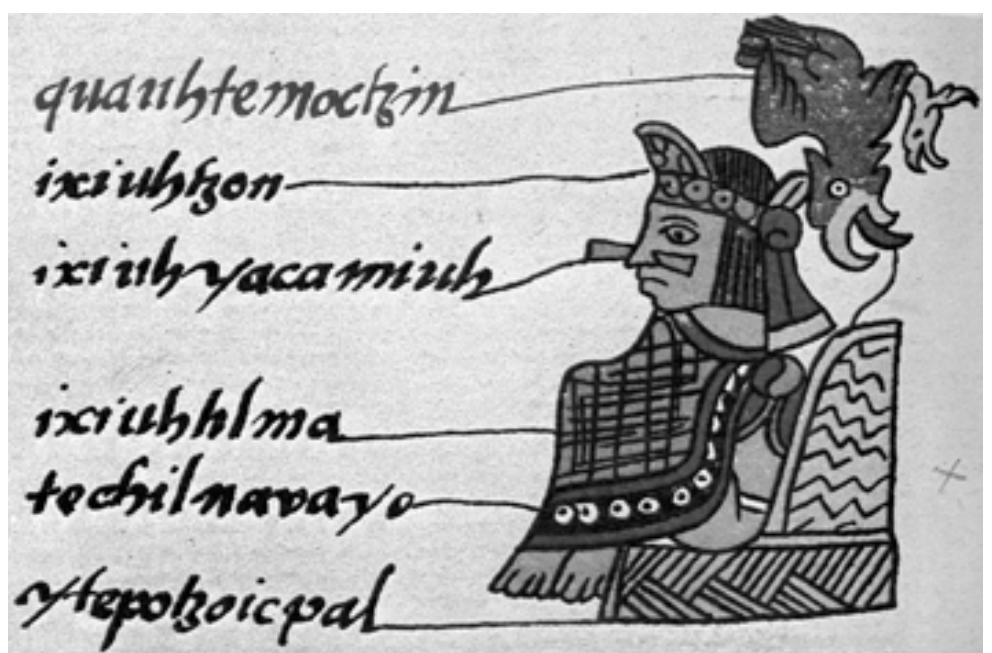 quauhtemoctzin
ixiuhtzon
ixiuhyacamiuh
ixiuhhlma
techilnavayo
ytepotzoicpal